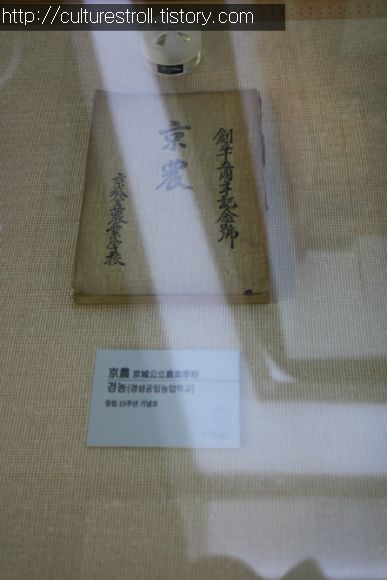 http://culturestroll.tistory.com
創立十五周年記念號
京農
京城公立農業學校
京農 京城公立農業學校
경농(경성공립농업학교)
창립 15주년 기념호